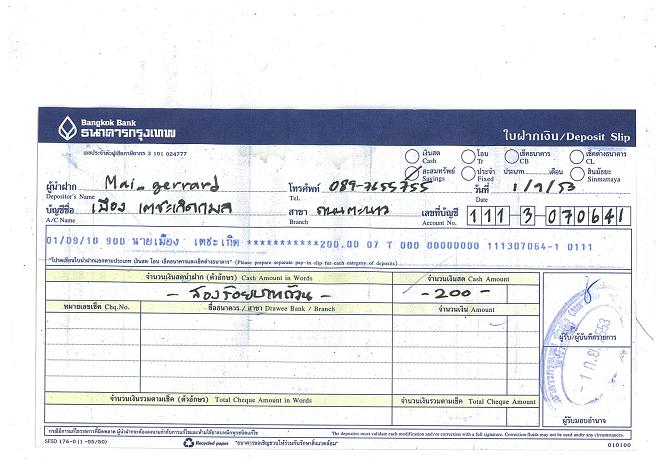 Bangkok Bank
ธนาคารกรุงเทพ
ใบฝากเงิน/Deposit Slip
เลขประจำตัวผู้เสียภาษีอากร 3 101 024777
เงินสด Cash
โอน Tr
เช็คธนาคาร CB
เช็คต่างธนาคาร CL
สะสมทรัพย์ Savings
ประจำ Fixed
ประเภท......เดือน
สินมัธยะ Sinmattaya
ผู้นำฝาก Depositor's Name Mai_gerrard
โทรศัพท์ Tel. 089-7655755
วันที่ 1/9/53
บัญชีชื่อ A/C Name เมือง เตชะเกิดกมล
สาขา Branch ถนนตะนาว
เลขที่บัญชี Account No. 111-3-070641
01/09/10 900 นายเมือง เตชะเกิด ***********200.00 07 T 000 00000000 111307064-1 0111
"โปรดเขียนใบนำฝากแยกตามประเภท เงินสด โอน เช็คธนาคารและเช็คต่างธนาคาร" (Please prepare separate pay-in slip for each category of deposits)
จำนวนเงินสดนำฝาก (ตัวอักษร) Cash Amount in Words
จำนวนเงินสด Cash Amount
- สองร้อยบาทถ้วน -
- 200 -
หมายเลขเช็ค Chq.No.
ชื่อธนาคาร / สาขา Drawee Bank / Branch
จำนวนเงิน Amount
ผู้รับ/ผู้บันทึกรายการ
จำนวนเงินรวมตามเช็ค (ตัวอักษร) Total Cheque Amount in Words
จำนวนเงินรวมตามเช็ค Total Cheque Amount
ผู้รับมอบอำนาจ
กรณีมีการแก้ไขรายการที่ผิดพลาด ผู้นำฝากจะต้องลงนามกำกับการแก้ไขและห้ามใช้ยาลบหมึกทุกชนิดแก้ไข
The depositor must validate each modification/correction with a full signature. Correction fluids may not be used under any circumstances.
SFSD 176-0 (1 -05/50)
Recycled paper
"ธนาคารขอเชิญชวนให้ร่วมกันรักษาสิ่งแวดล้อม"
010100